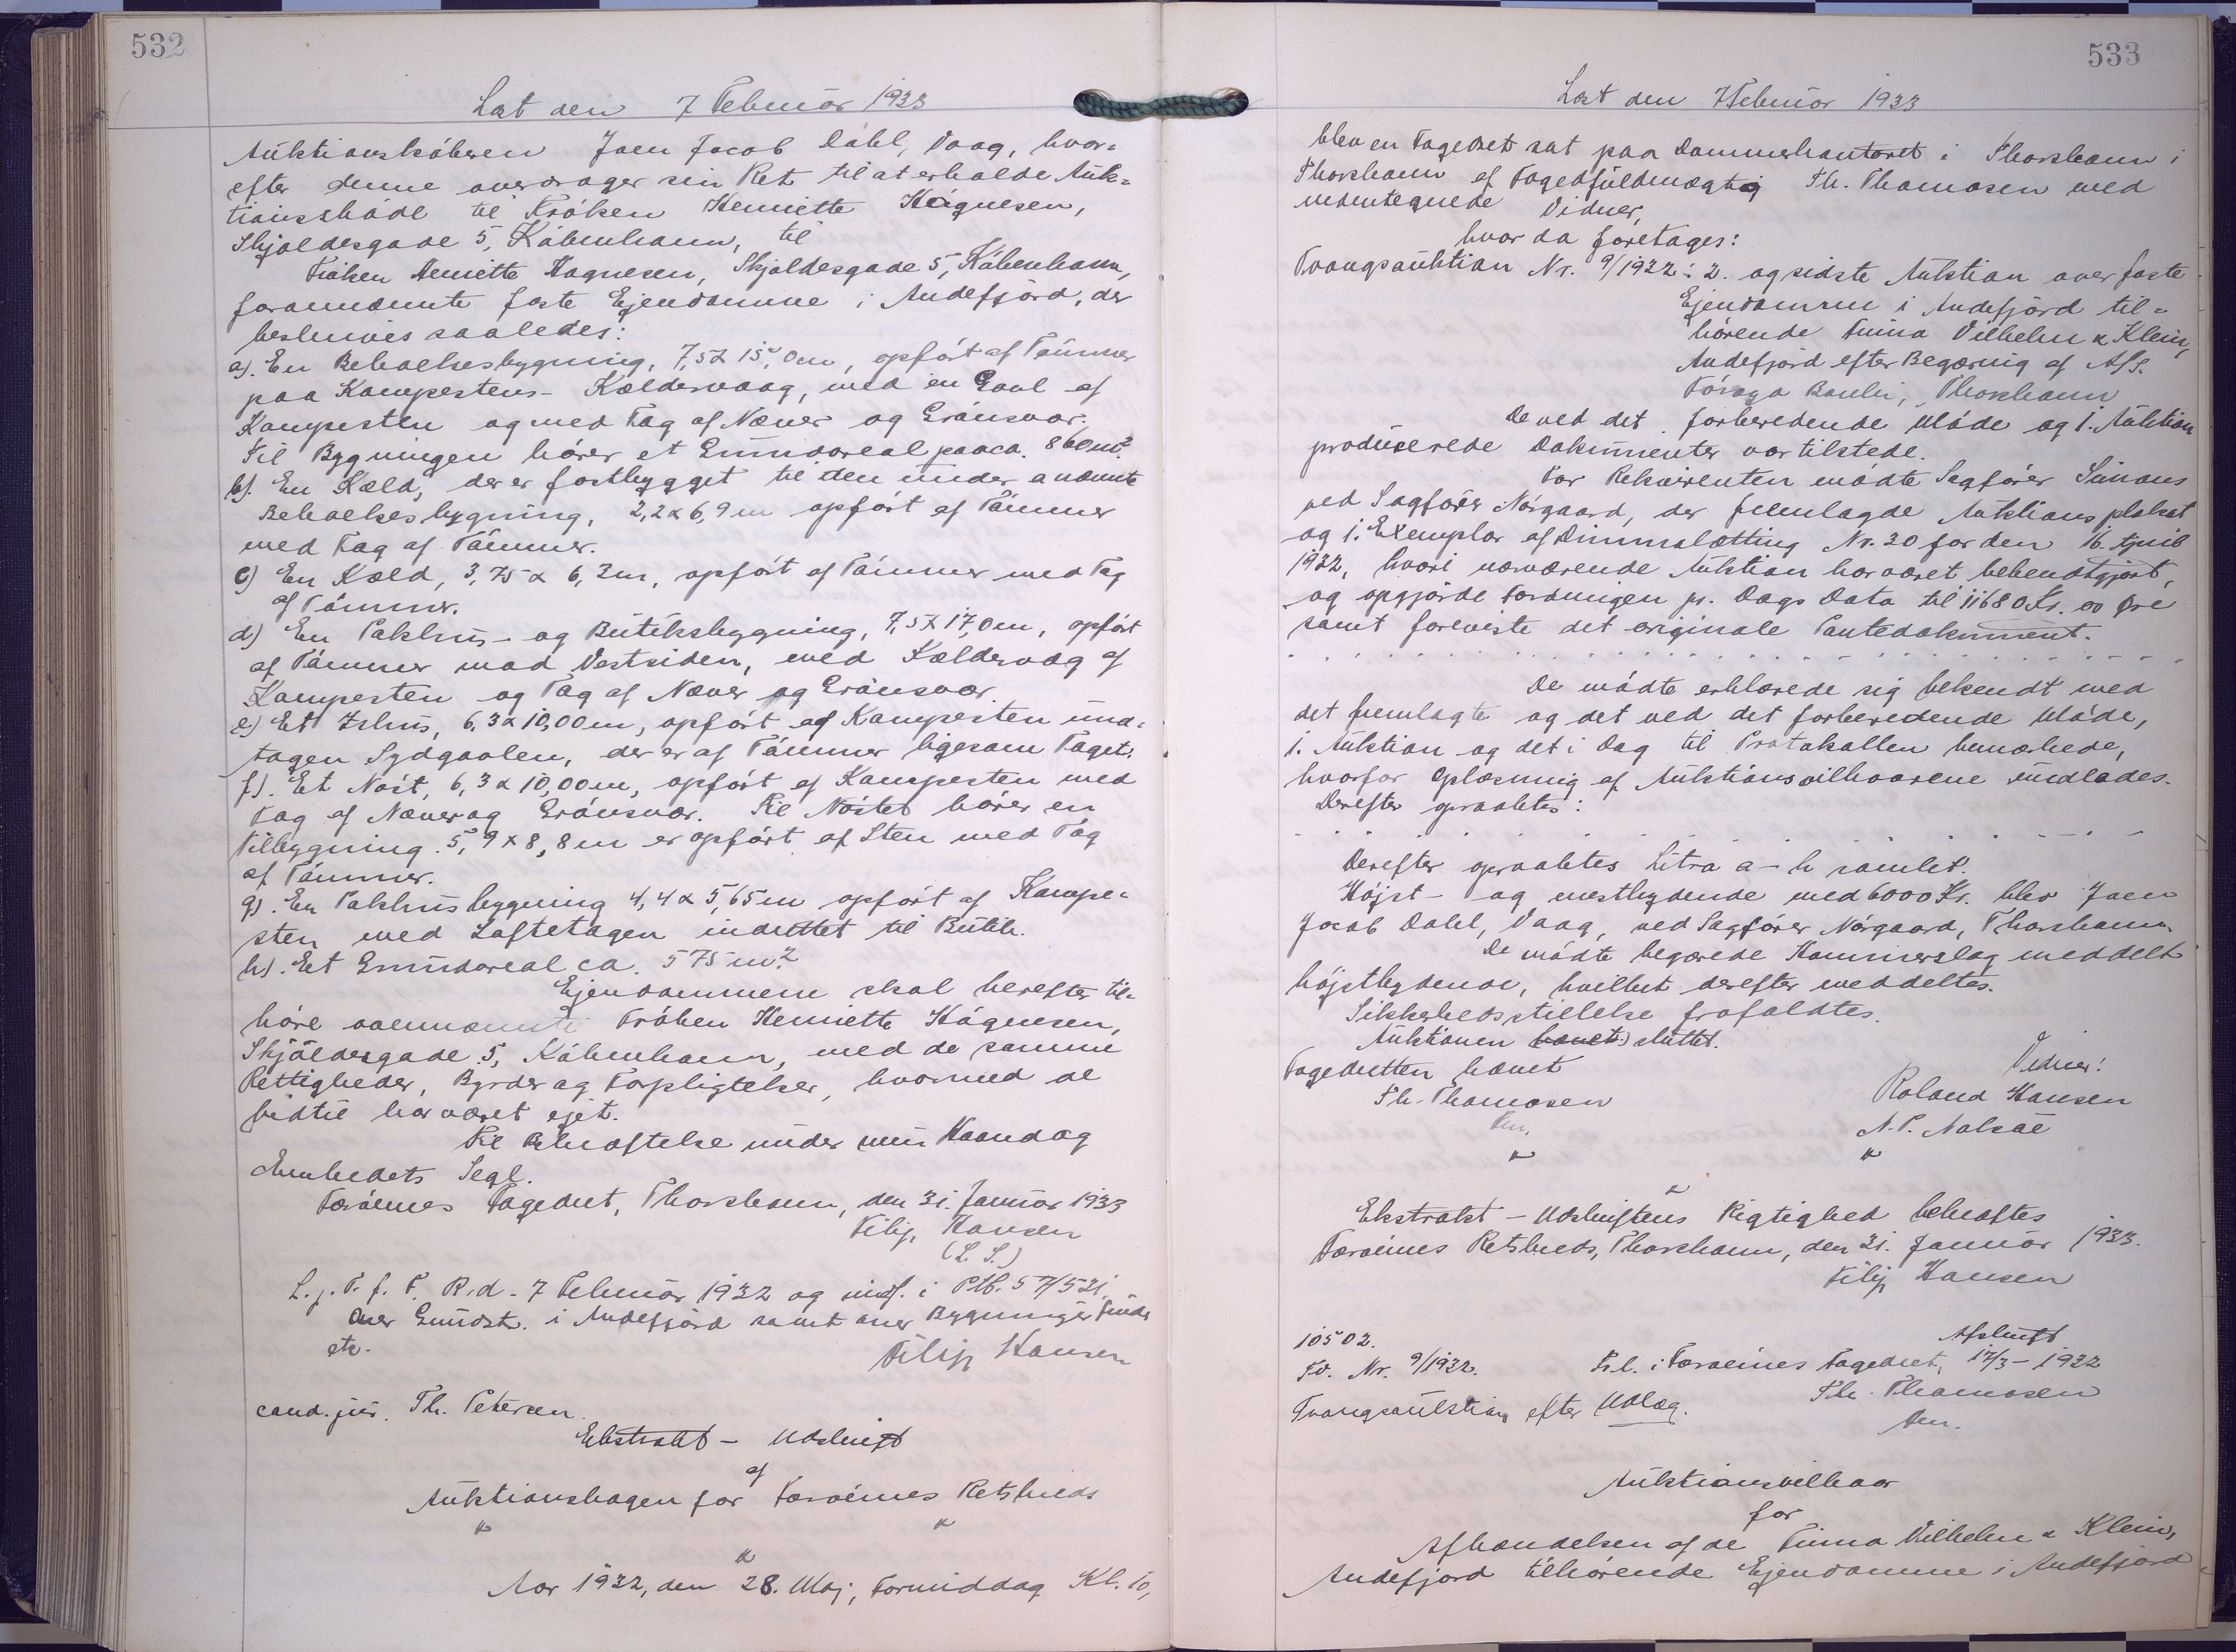 532
Læst den 7 Februar 1933
Auktionskøberen Joen Jacob Dahl, Vaag, hvor=
efter denne overdrager sin Ret til at erholde Auk=
tionsskøde til Frøken Henriette Høgnesen,
Skjoldsgade 5, København, til
Frøken Henriette Høgnesen, Skjoldsgade 5, København,
forannævnte faste Ejendomme i Andefjord, der
beskrives saaledes:
a). En Beboelsesbygning, 7,5 x 15,0 m, opført af Tømmer
paa Kampestens-Kældervæg, med en Gavl af
Kampesten og med Tag af Næver og Grønsvær.
Til Bygningen hører et Grundareal paa ca. 860 m².
b). En Kæld, der er fastbygget til den under a nævnte
Beboelsesbygning, 2,2 x 6,9 m opført af Tømmer
med Tag af Tømmer.
c) En Kæld, 3,75 x 6,3 m, opført af Tømmer med Tag
af Tømmer.
d) En Pakhus- og Butiksbygning, 7,5 x 17,0 m, opført
af Tømmer mod Vestsiden, med Kældervæg af
Kampesten og Tag af Næver og Grønsvær.
e) Et Ishus, 6,3 x 10,00 m, opført af Kampesten und=
tagen Sydgavlen, der er af Tømmer ligesom Taget.
f). Et Nøst, 6,3 x 10,00 m, opført af Kampesten med
Tag af Næver og Grønsvær. Til Nøstet hører en
Tilbygning. 5,9 x 8,8 m er opført af Sten med Tag
af Tømmer.
g). En Pakhusbygning 4,4 x 5,65 m opført af Kampe=
sten med Loftetagen indrettet til Butik.
h). Et Grundareal ca. 575 m²
Ejendommene skal herefter til=
høre ovennævnte Frøken Henriette Høgnesen,
Skjoldsgade 5, København, med de samme
Rettigheder, Byrder og Forpligtelser, hvormed de
hidtil har været ejet.
Til Bekræftelse under min Haand og
Embedets Segl.
Færøernes Fogedret, Thorshavn, den 31. Januar 1933
Filip Hansen
(L. S.)
L. p. T. f. F. R. d. 7 Februar 1932 og indf. i Ptk. 57/531
over Grundst. i Andefjord samt over Bygninger
etc.
Filip Hansen
cand. jur. Th. Petersen.
Ekstrakt - Udskrift
af
Auktionsbogen for Færøernes Retskreds
"
"
"
Aar 1932, den 28. Maj, Formiddag Kl. 10,
533
Læst den 7 Februar 1933
blev en Fogedret sat paa Dommerkontoret i Thorshavn i
Thorshavn af Fogedfuldmægtig Th. Thomasen med
undertegnede Vidner,
hvor da foretages:
Tvangsauktion Nr. 9/1932: 2. og sidste Auktion over faste
Ejendomme i Andefjord til=
hørende Firma Vilhelm & Klein,
Andefjord efter Begæring af A/S.
Føroya Banki, Thorshavn
De ved det forberedende Møde og 1. Auktion
producerede Dokumenter var tilstede.
For Rekvirenten mødte Sagfører Simons
ved Sagfører Nórgaard, der fremlagde Auktionsplakat
og 1. Exemplar af Dimmalætting Nr. 30 for den 16. April
1932, hvori nærværende Auktion har været bekendtgjort,
og opgjorde Fordringen pr. Dags Dato til 11680 Kr. 00 Øre
samt foreviste det originale Pantedokument.
De mødte erklærede sig bekendt med
det fremlagte og det ved det forberedende Møde,
1. Auktion og det i Dag til Protokollen bemærkede,
hvorfor Oplæsning af Auktionsvilkaarene undlades.
Derefter opraabtes:
Derefter opraabtes Litra a - h samlet.
Højst- og mestbydende med 6000 Kr. blev Joen
Jacob Dahl, Vaag, ved Sagfører Nórgaard, Thorshavn.
De mødte begærede Hammerslag meddelt
højstbydende, hvilket derefter meddeltes.
Sikkerhedsstillelse frafaldtes.
Auktionen (hævet) sluttet.
Fogedretten hævet
Vidner:
Th. Thomasen
Roland Hansen
fm.
N. P. Nolsøe
"
"
"
Ekstrakt - Udskriftens Rigtighed bekræftes
Færøernes Retskreds, Thorshavn, den 31. Januar 1933.
Filip Hansen
10502.
Afskrift
Fo. Nr. 9/1932.
Frl. i Færøernes Fogedret, 17/3 - 1932
Tvangsauktion efter Udlæg.
Th. Thomasen
fm.
Auktionsvilkaar
for
Afhændelsen af de Firma Vilhelm & Klein,
Andefjord tilhørende Ejendomme i Andefjord